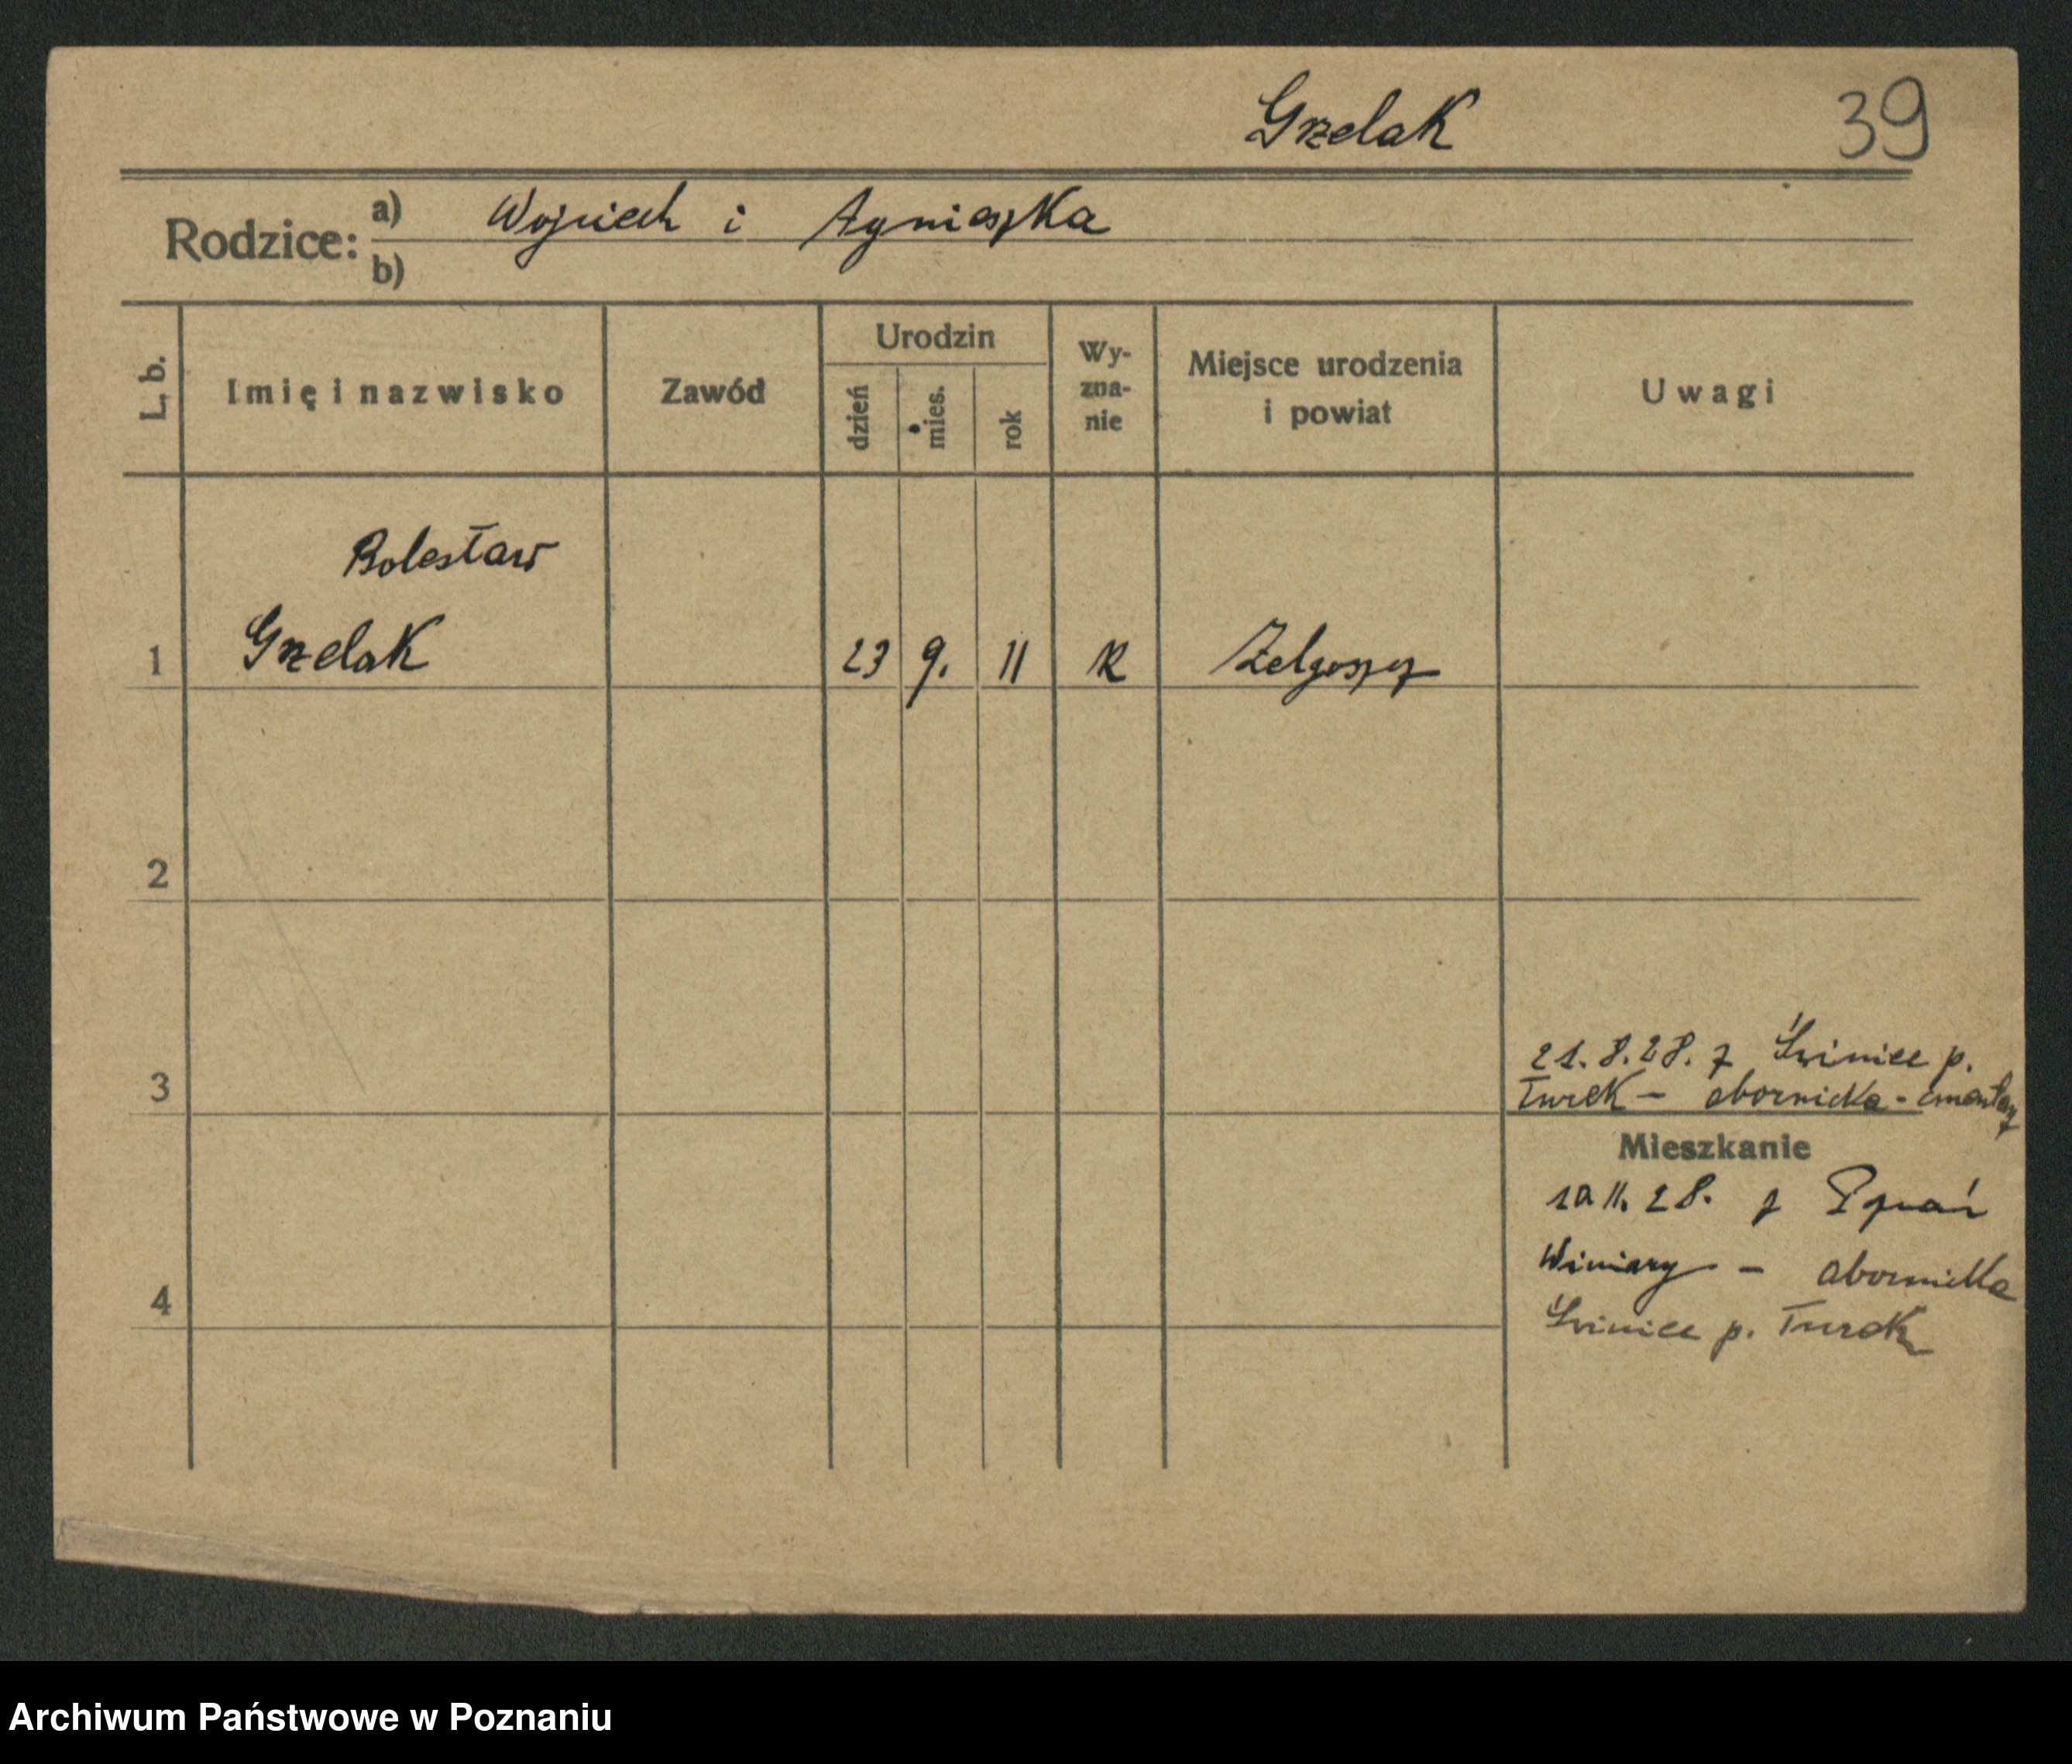 Grzelak 39
Rodzice: a) Wojciech i Agnieszka
b)
L. b. Imię i nazwisko Zawód Urodzin dzień mies. rok Wy-zna-nie Miejsce urodzenia i powiat Uwagi
Bolesław
1 Grzelak 23 9. 11 R Żelgoszcz
2
3
21.8.28. z Świnice p.
Turek - obornicka - cmentarz
Mieszkanie
10.11.28. z Poznań
Winiary - obornicka
4
Świnice p. Turek
Archiwum Państwowe w Poznaniu